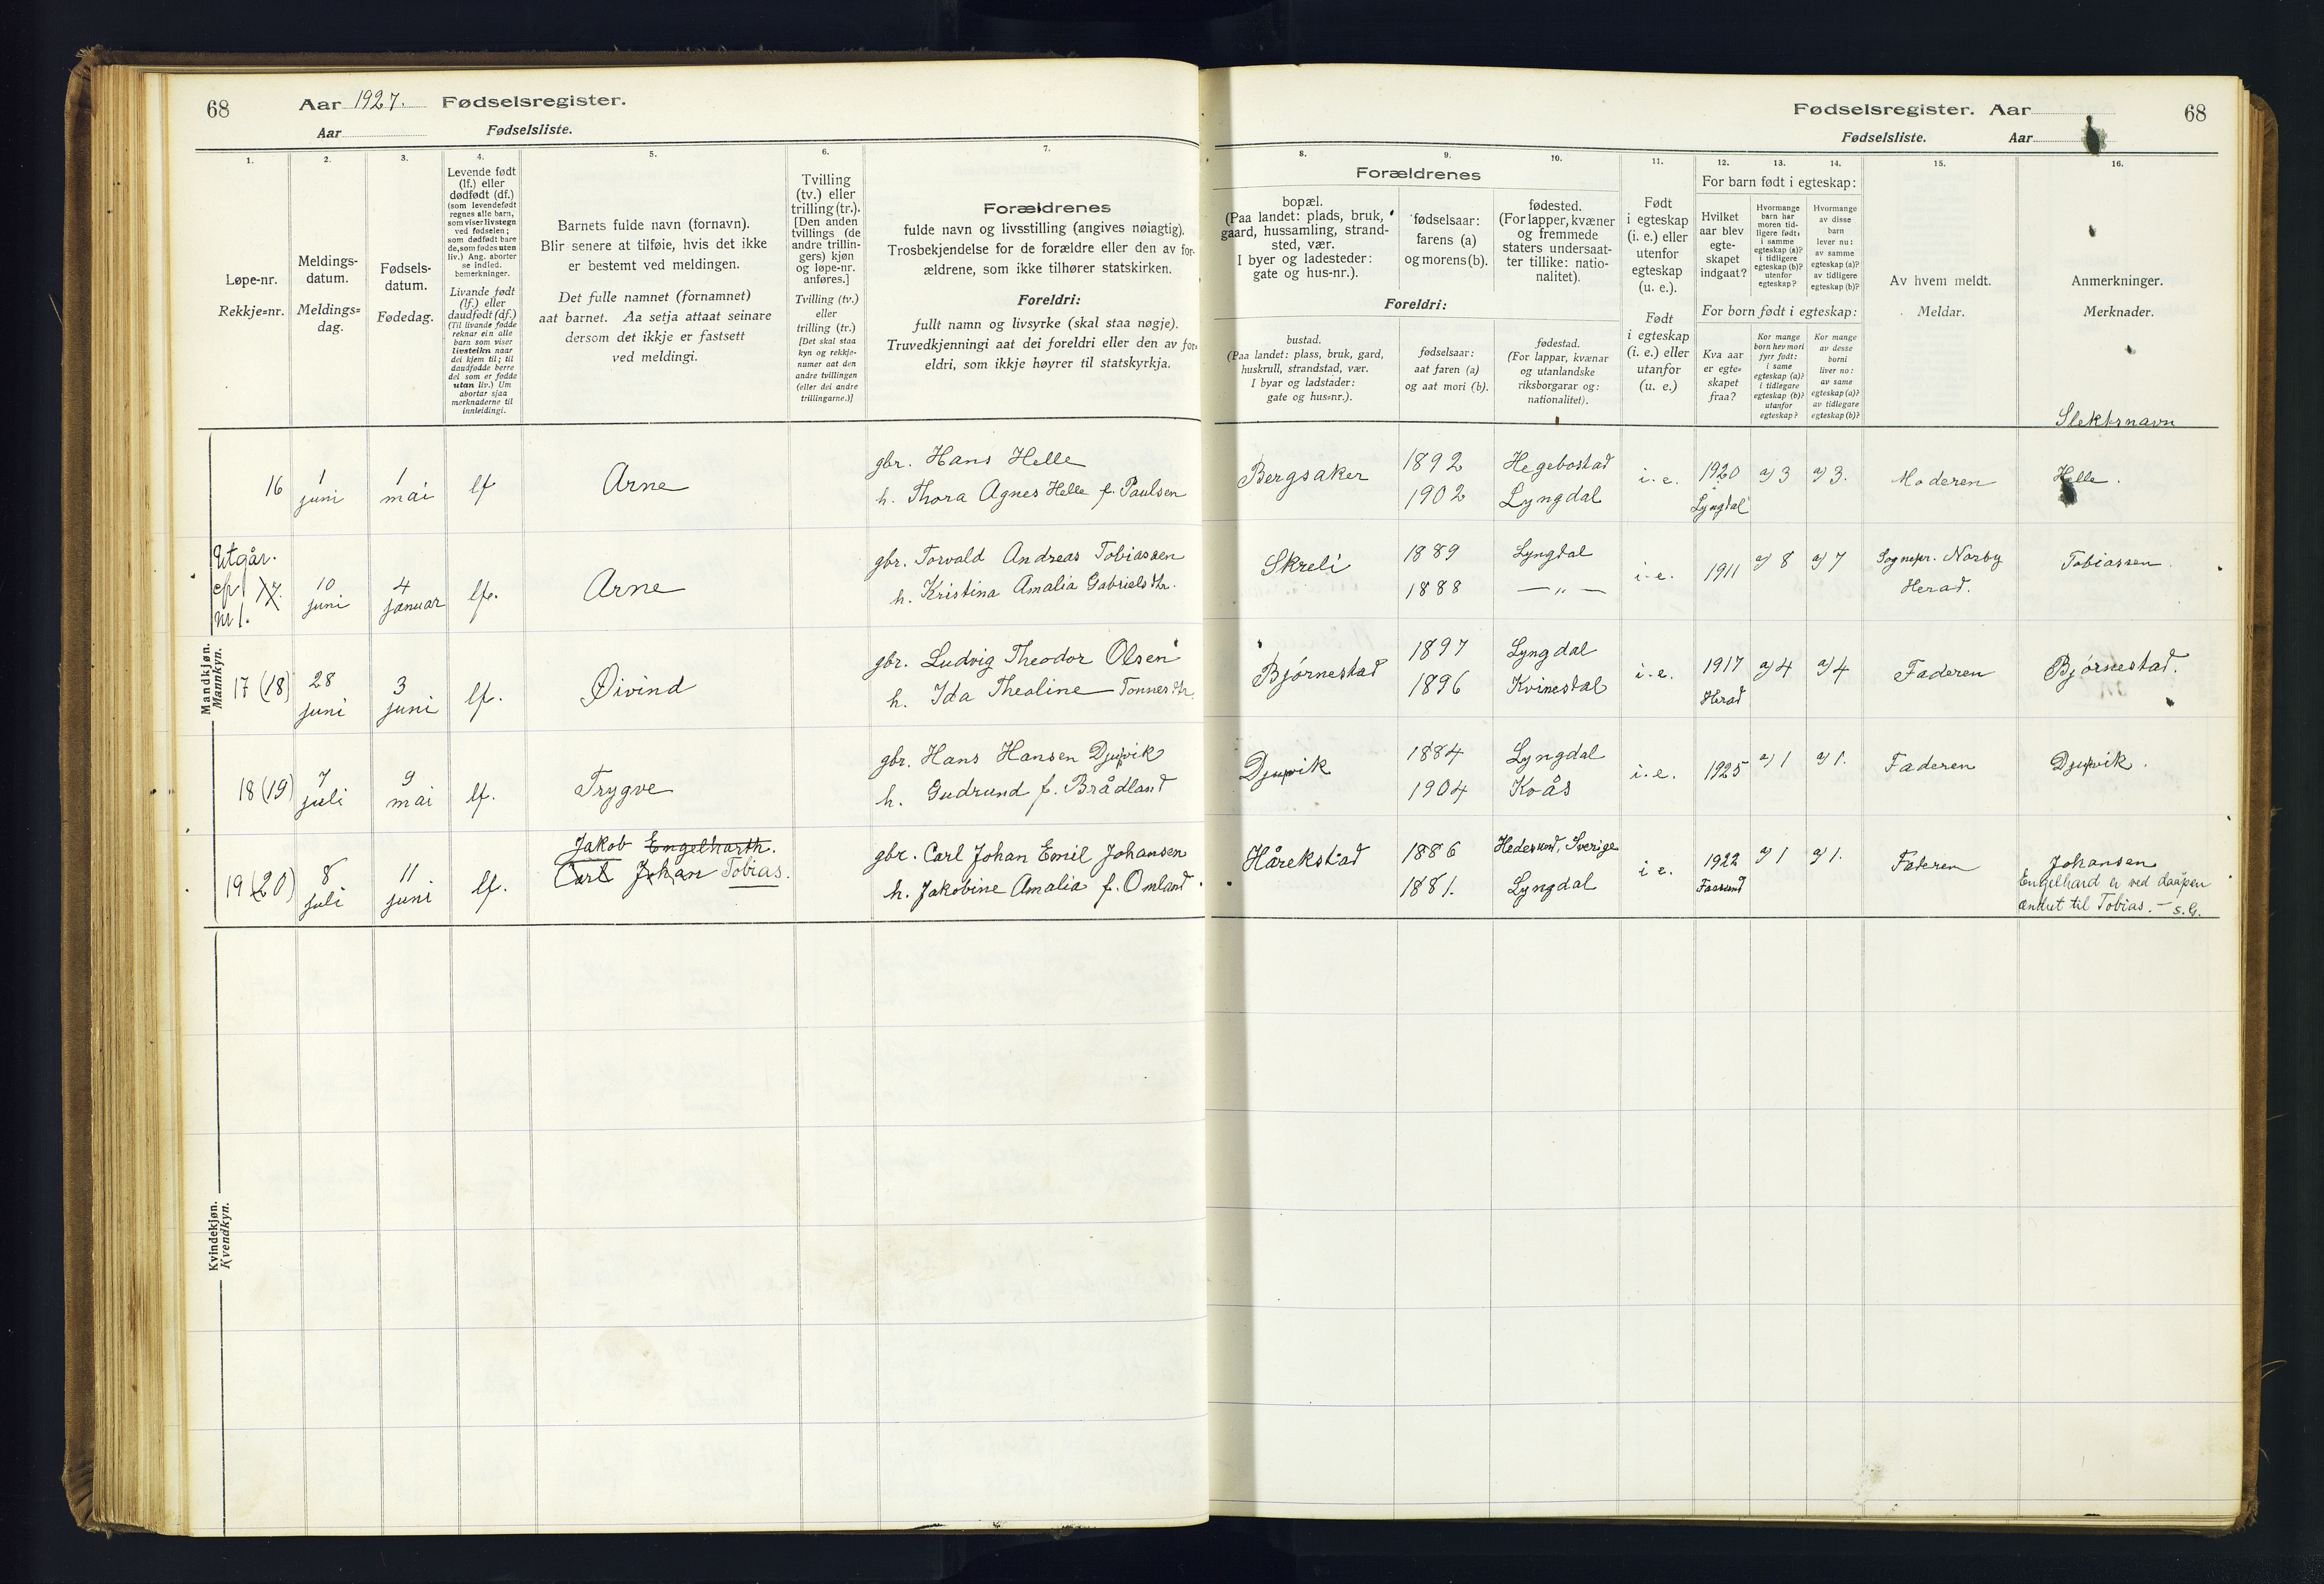 68 Aar 1927. Fødselsregister.
Aar Fødselsliste.
1.
Løpe-nr.
Rekkje=nr.
2.
Meldings-
datum.
Meldings=
dag.
3.
Fødsels-
datum.
Fødedag.
4.
Levende født
(lf.) eller
dødfødt (df.)
(som levendefødt
regnes alle barn,
som viser livstegn
ved fødselen;
som dødfødt bare
de, som fødes uten
liv.) Ang. aborter
se indled.
bemerkninger.
Livande født
(lf.) eller
daudfødt (df.)
(Til livande fødde
reknar ein alle
barn som viser
livsteikn naar
dei kjem til; til
daudfødde berre
dei som er fødde
utan liv.) Um
abortar sjaa
merknaderne til
innleidingi.
5.
Barnets fulde navn (fornavn).
Blir senere at tilføie, hvis det ikke
er bestemt ved meldingen.
Det fulle namnet (fornamnet)
aat barnet. Aa setja attaat seinare
dersom det ikkje er fastsett
ved meldingi.
6.
Tvilling
(tv.) eller
trilling (tr.).
[Den anden
tvillings (de
andre trillin-
gers) kjøn
og løpe-nr.
anføres.]
Tvilling (tv.)
eller
trilling (tr.)
[Det skal staa
kyn og rekkje-
numer aat den
andre tvillingen
(eller dei andre
trillingarne.)]
7.
Forældrenes
fulde navn og livsstilling (angives nøiagtig).
Trosbekjendelse for de forældre eller den av for-
ældrene, som ikke tilhører statskirken.
Foreldri:
fullt namn og livsyrke (skal staa nøgje).
Truvedkjenningi aat dei foreldri eller den av for-
eldri, som ikkje høyrer til statskyrkja.
Fødselsregister. Aar 68
Fødselsliste. Aar
Forældrenes
8.
bopæl.
(Paa landet: plads, bruk,
gaard, hussamling, strand-
sted, vær.
I byer og ladesteder:
gate og hus-nr.).
9.
fødselsaar:
farens (a)
og morens (b).
10.
fødested.
(For lapper, kvæner
og fremmede
staters undersaat-
ter tillike: natio-
nalitet).
Foreldri:
bustad.
(Paa landet: plass, bruk, gard,
huskrull, strandstad, vær.
I byar og ladstader:
gate og hus=nr.).
fødselsaar:
aat faren (a)
og aat mori (b).
fødestad.
(For lappar, kvænar
og utanlandske
riksborgarar og:
nationalitet).
11.
Født
i egteskap
(i. e.) eller
utenfor
egteskap
(u. e.).
Født
i egteskap
(i. e.) eller
utanfor
(u. e.)
For barn født i egteskap:
12.
Hvilket
aar blev
egte-
skapet
indgaat?
13.
Hvormange
barn har
moren tid-
ligere født:
i samme
egteskap (a)?
i tidligere
egteskap (b)?
utenfor
egteskap?
14.
Hvormange
av disse
barn
lever nu:
av samme
egteskap (a)?
av tidligere
egteskap (b)?
For born født i egteskap:
Kva aar
er egte-
skapet
fraa?
Kor mange
born hev mori
fyrr født:
i same
egteskap (a)?
i tidlegare
egteskap (b)?
utanfor
egteskap?
Kor mange
av desse
borni
liver no:
av same
egteskap (a)?
av tidlegare
egteskap (b)?
15.
Av hvem meldt.
Meldar.
16.
Anmerkninger.
Merknader.
Slektsnavn
Mandkjøn.
Mannkyn.
16 1 juni 1 mai lf Arne
gbr. Hans Helle
h. Thora Agnes Helle f. Paulsen
Bergsaker 1892 Hegebostad i. e. 1920 a) 3 a) 3. Moderen Helle.
1902 Lyngdal Lyngdal
Utgår.
cfr 17.
nr 1.
10 juni 4 januar lf. Arne
gbr. Torvald Andreas Tobiassen
h. Kristina Amalia Gabrielsdtr.
Skreli 1889 Lyngdal i. e. 1911 a) 8 a) 7 Sognepr. Norby Tobiassen.
1888 — " — Herad.
17 (18) 28 juni 3 juni lf. Øivind
gbr. Ludvig Theodor Olsen
h. Ida Theoline Tonnesdtr.
Bjørnestad 1897 Lyngdal i. e. 1917 a) 4 a) 4 Faderen Bjørnestad.
1896 Kvinesdal Herad
18 (19) 7 juli 9 mai lf. Trygve
gbr. Hans Hansen Djupvik
h. Gudrund f. Brådland
Djupvik 1884 Lyngdal i. e. 1925 a) 1 a) 1. Faderen Djupvik.
1904 Kvås
19 (20) 8 juli 11 juni lf.
Jakob Engelharth.
Carl Johan Tobias.
gbr. Carl Johan Emil Johansen
h. Jakobine Amalia f. Omland.
Hårekstad 1886 Hedesund, Sverige i e. 1922 a) 1 a) 1. Faderen Johansen
1881. Lyngdal Farsund
Engelhard er ved daåpen
andret til Tobias. – S.G.
Kvindekjøn.
Kvendkyn.